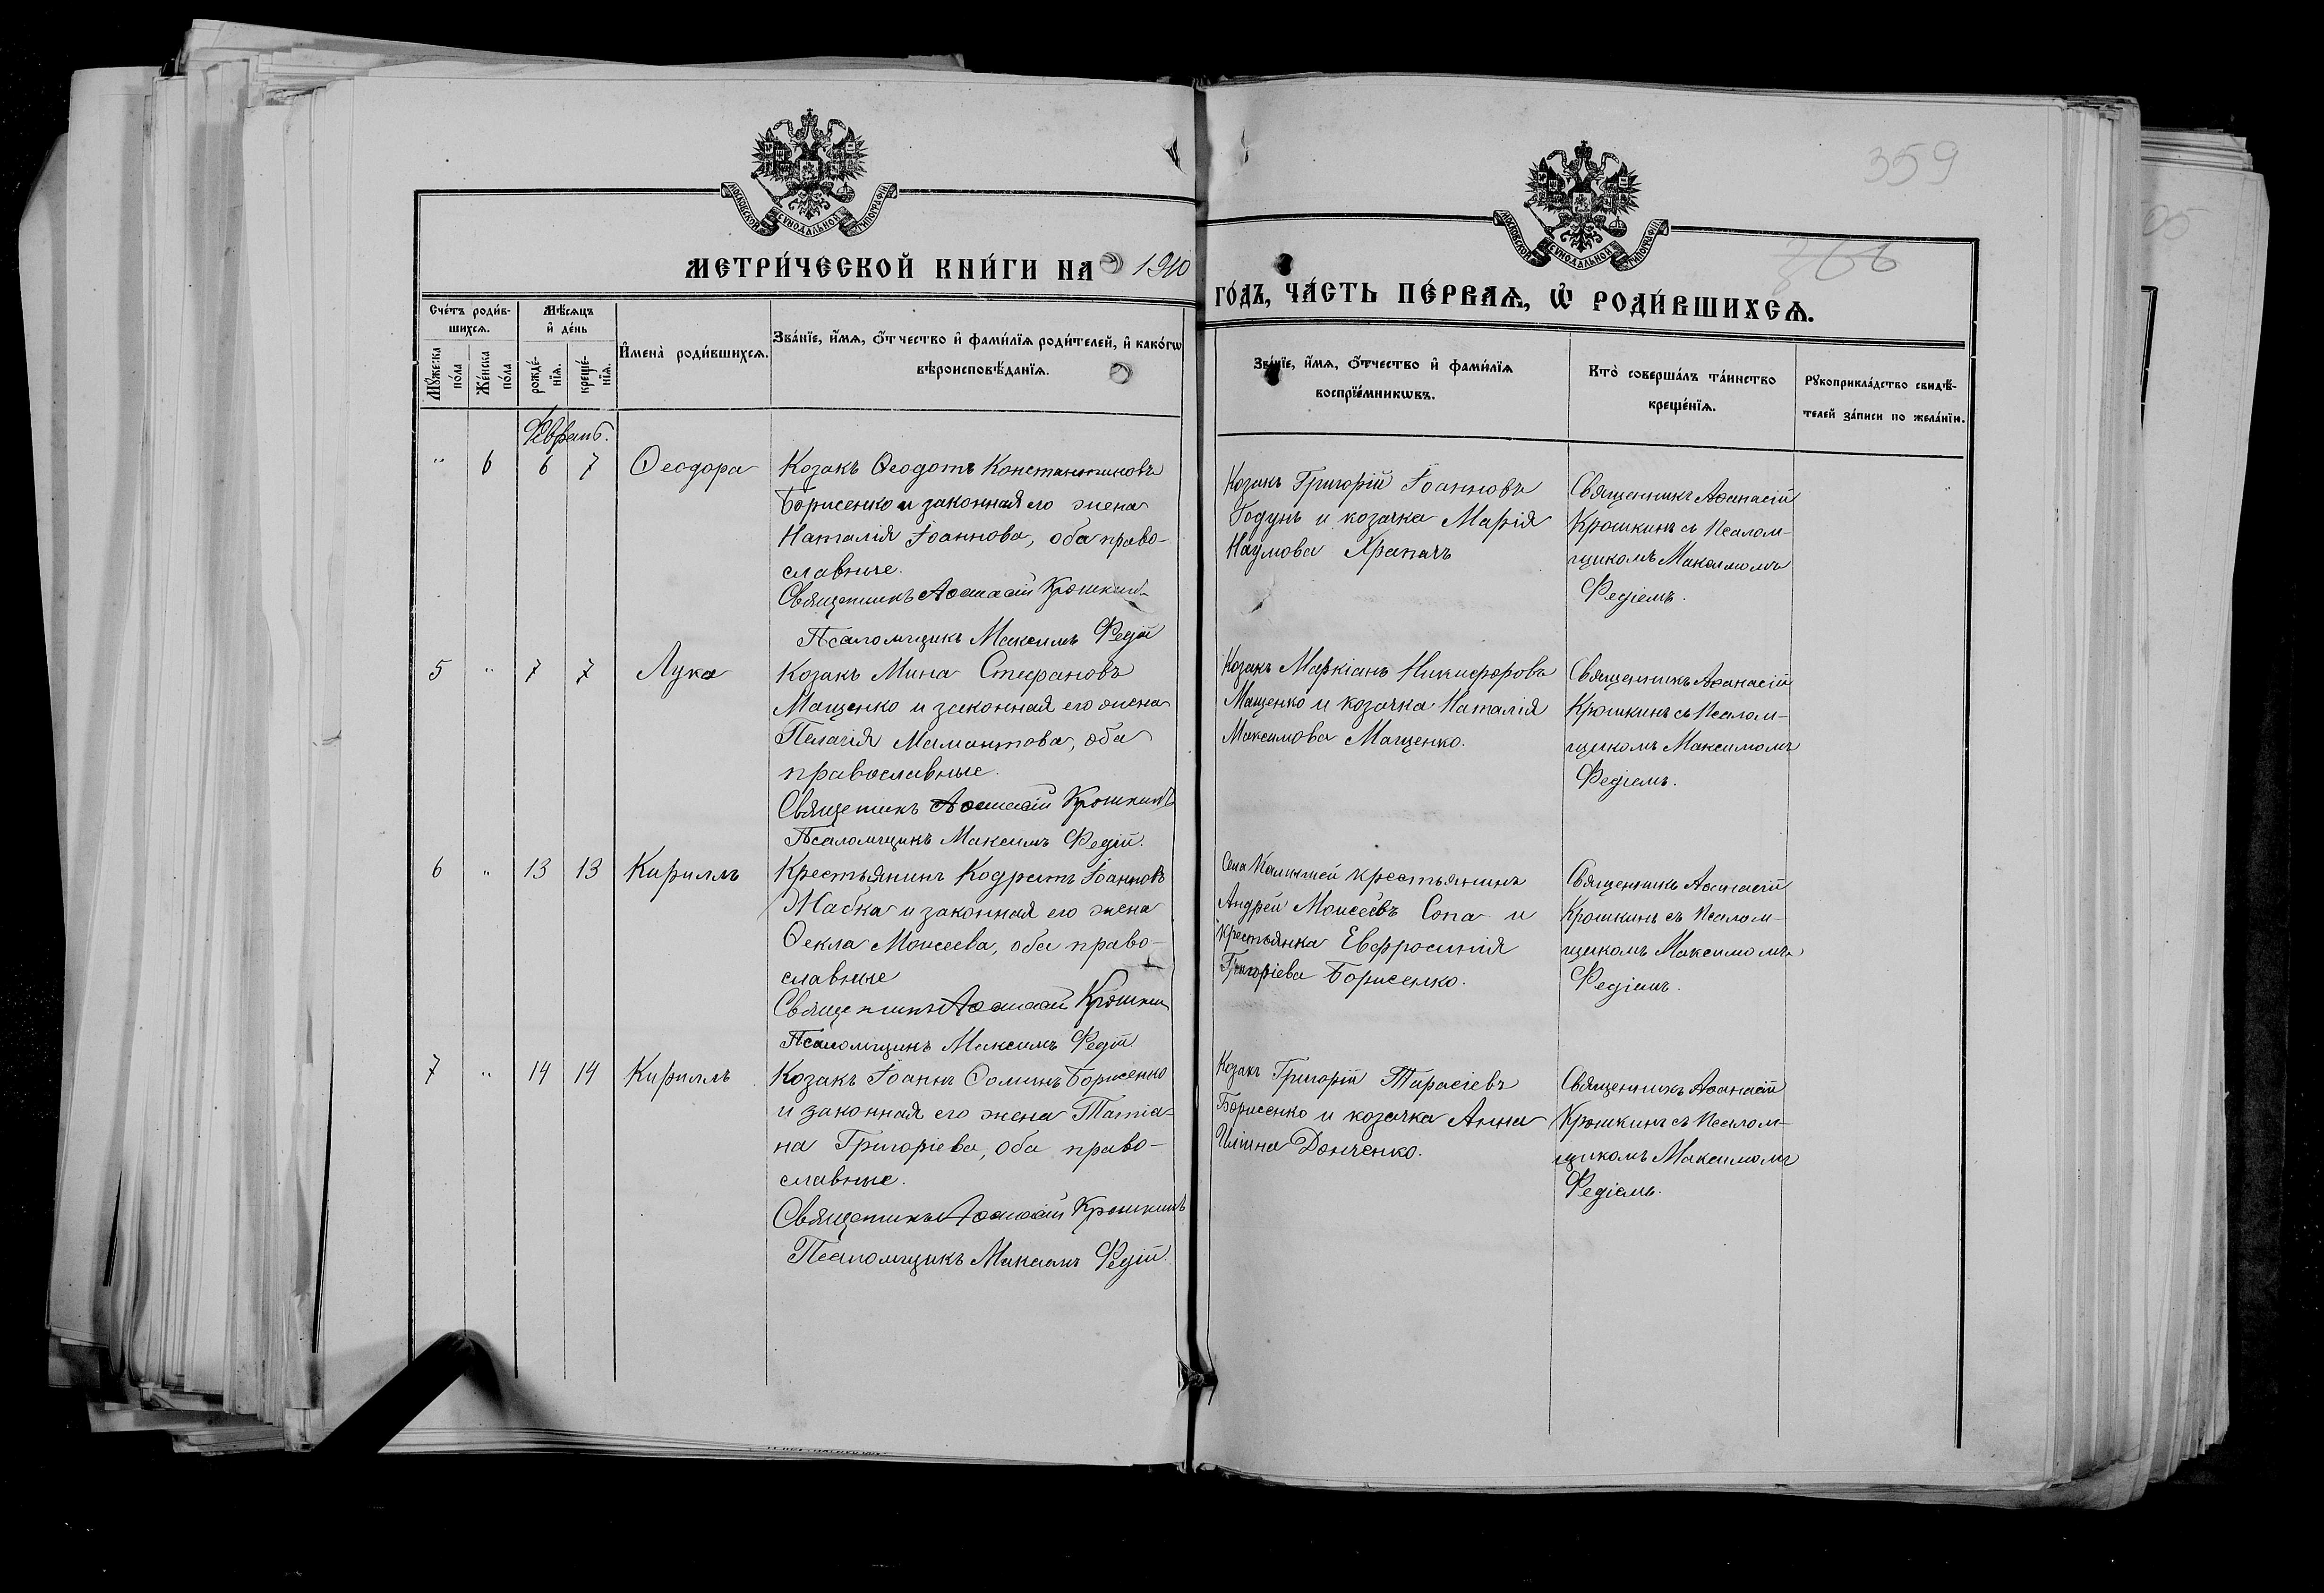 359
366
МОСКОВСКОЙ СѴНОДАЛЬНОЙ ТИПОГРАФІИ
МОСКОВСКОЙ СѴНОДАЛЬНОЙ ТИПОГРАФІИ
МЕТРИ́ЧЕСКОЙ КНИ́ГИ НА 1910
ГО́ДЪ, ЧА́СТЬ ПЕ́РВАѦ, Ѡ҆ РОДИ́ВШИХСѦ.
Сче́тъ роди́в-
шихсѧ.
Мꙋ́жеска
по́ла
Же́нска
по́ла
Мѣ́сѧцъ
и҆ де́нь
рожде́-
нїѧ.
креще́-
нїѧ.
И҆мена̀ роди́вшихсѧ.
Зва́нїе, и҆́мѧ, ѻ҆́тчество и҆ фами́лїѧ роди́телей, и҆ како́гѡ
вѣроисповѣ́данїѧ.
Зва́нїе, и҆́мѧ, ѻ҆́тчество и҆ фами́лїѧ
воспрїе́мникѡвъ.
Кто̀ соверша́лъ та́инство
креще́нїѧ.
Рꙋкоприкла́дство свидѣ́-
телей за́писи по жела́нїю.
Февраль.
" 6 6 7 Ѳеодора
Козакъ Ѳеодотъ Константиновъ
Борисенко и законная его жена
Наталія Іоаннова, оба право-
славные.
Священникъ Аѳанасій Крошкинъ
Псаломщикъ Максимъ Федій
Козакъ Григорій Іоанновъ
Годунъ и козачка Марія
Наумова Храпачъ
Священникъ Аѳанасій
Крошкинъ съ Псалом-
щикомъ Максимомъ
Федіемъ.
5 " 7 7 Лука
Козакъ Мина Стефановъ
Мащенко и законная его жена
Пелагія Мамантова, оба
православные.
Священникъ Аѳанасій Крошкинъ
Псаломщикъ Максимъ Федій.
Козакъ Маркіанъ Никифоровъ
Мащенко и козачка Наталія
Максимова Мащенко.
Священникъ Аѳанасій
Крошкинъ съ Псалом-
щикомъ Максимомъ
Федіемъ.
6 " 13 13 Кириллъ
Крестьянинъ Кодратъ Іоанновъ
Жабка и законная его жена
Ѳекла Моисеева, оба право-
славные
Священникъ Аѳанасій Крошкинъ
Псаломщикъ Максимъ Федій.
Села крестьянинъ
Андрей Моисеевъ Сопа и
крестьянка Евфросинія
Григоріева Борисенко.
Священникъ Аѳанасій
Крошкинъ съ Псалом-
щикомъ Максимомъ
Федіемъ.
7 " 14 14 Кириллъ
Козакъ Іоаннъ Ѳоминъ Борисенко
и законная его жена Татіа-
на Григоріева, оба право-
славные.
Священникъ Аѳанасій Крошкинъ
Псаломщикъ Максимъ Федій.
Козакъ Григорій Тарасіевъ
Борисенко и козачка Анна
Иліина Донченко.
Священникъ Аѳанасій
Крошкинъ съ Псалом-
щикомъ Максимомъ
Федіемъ.